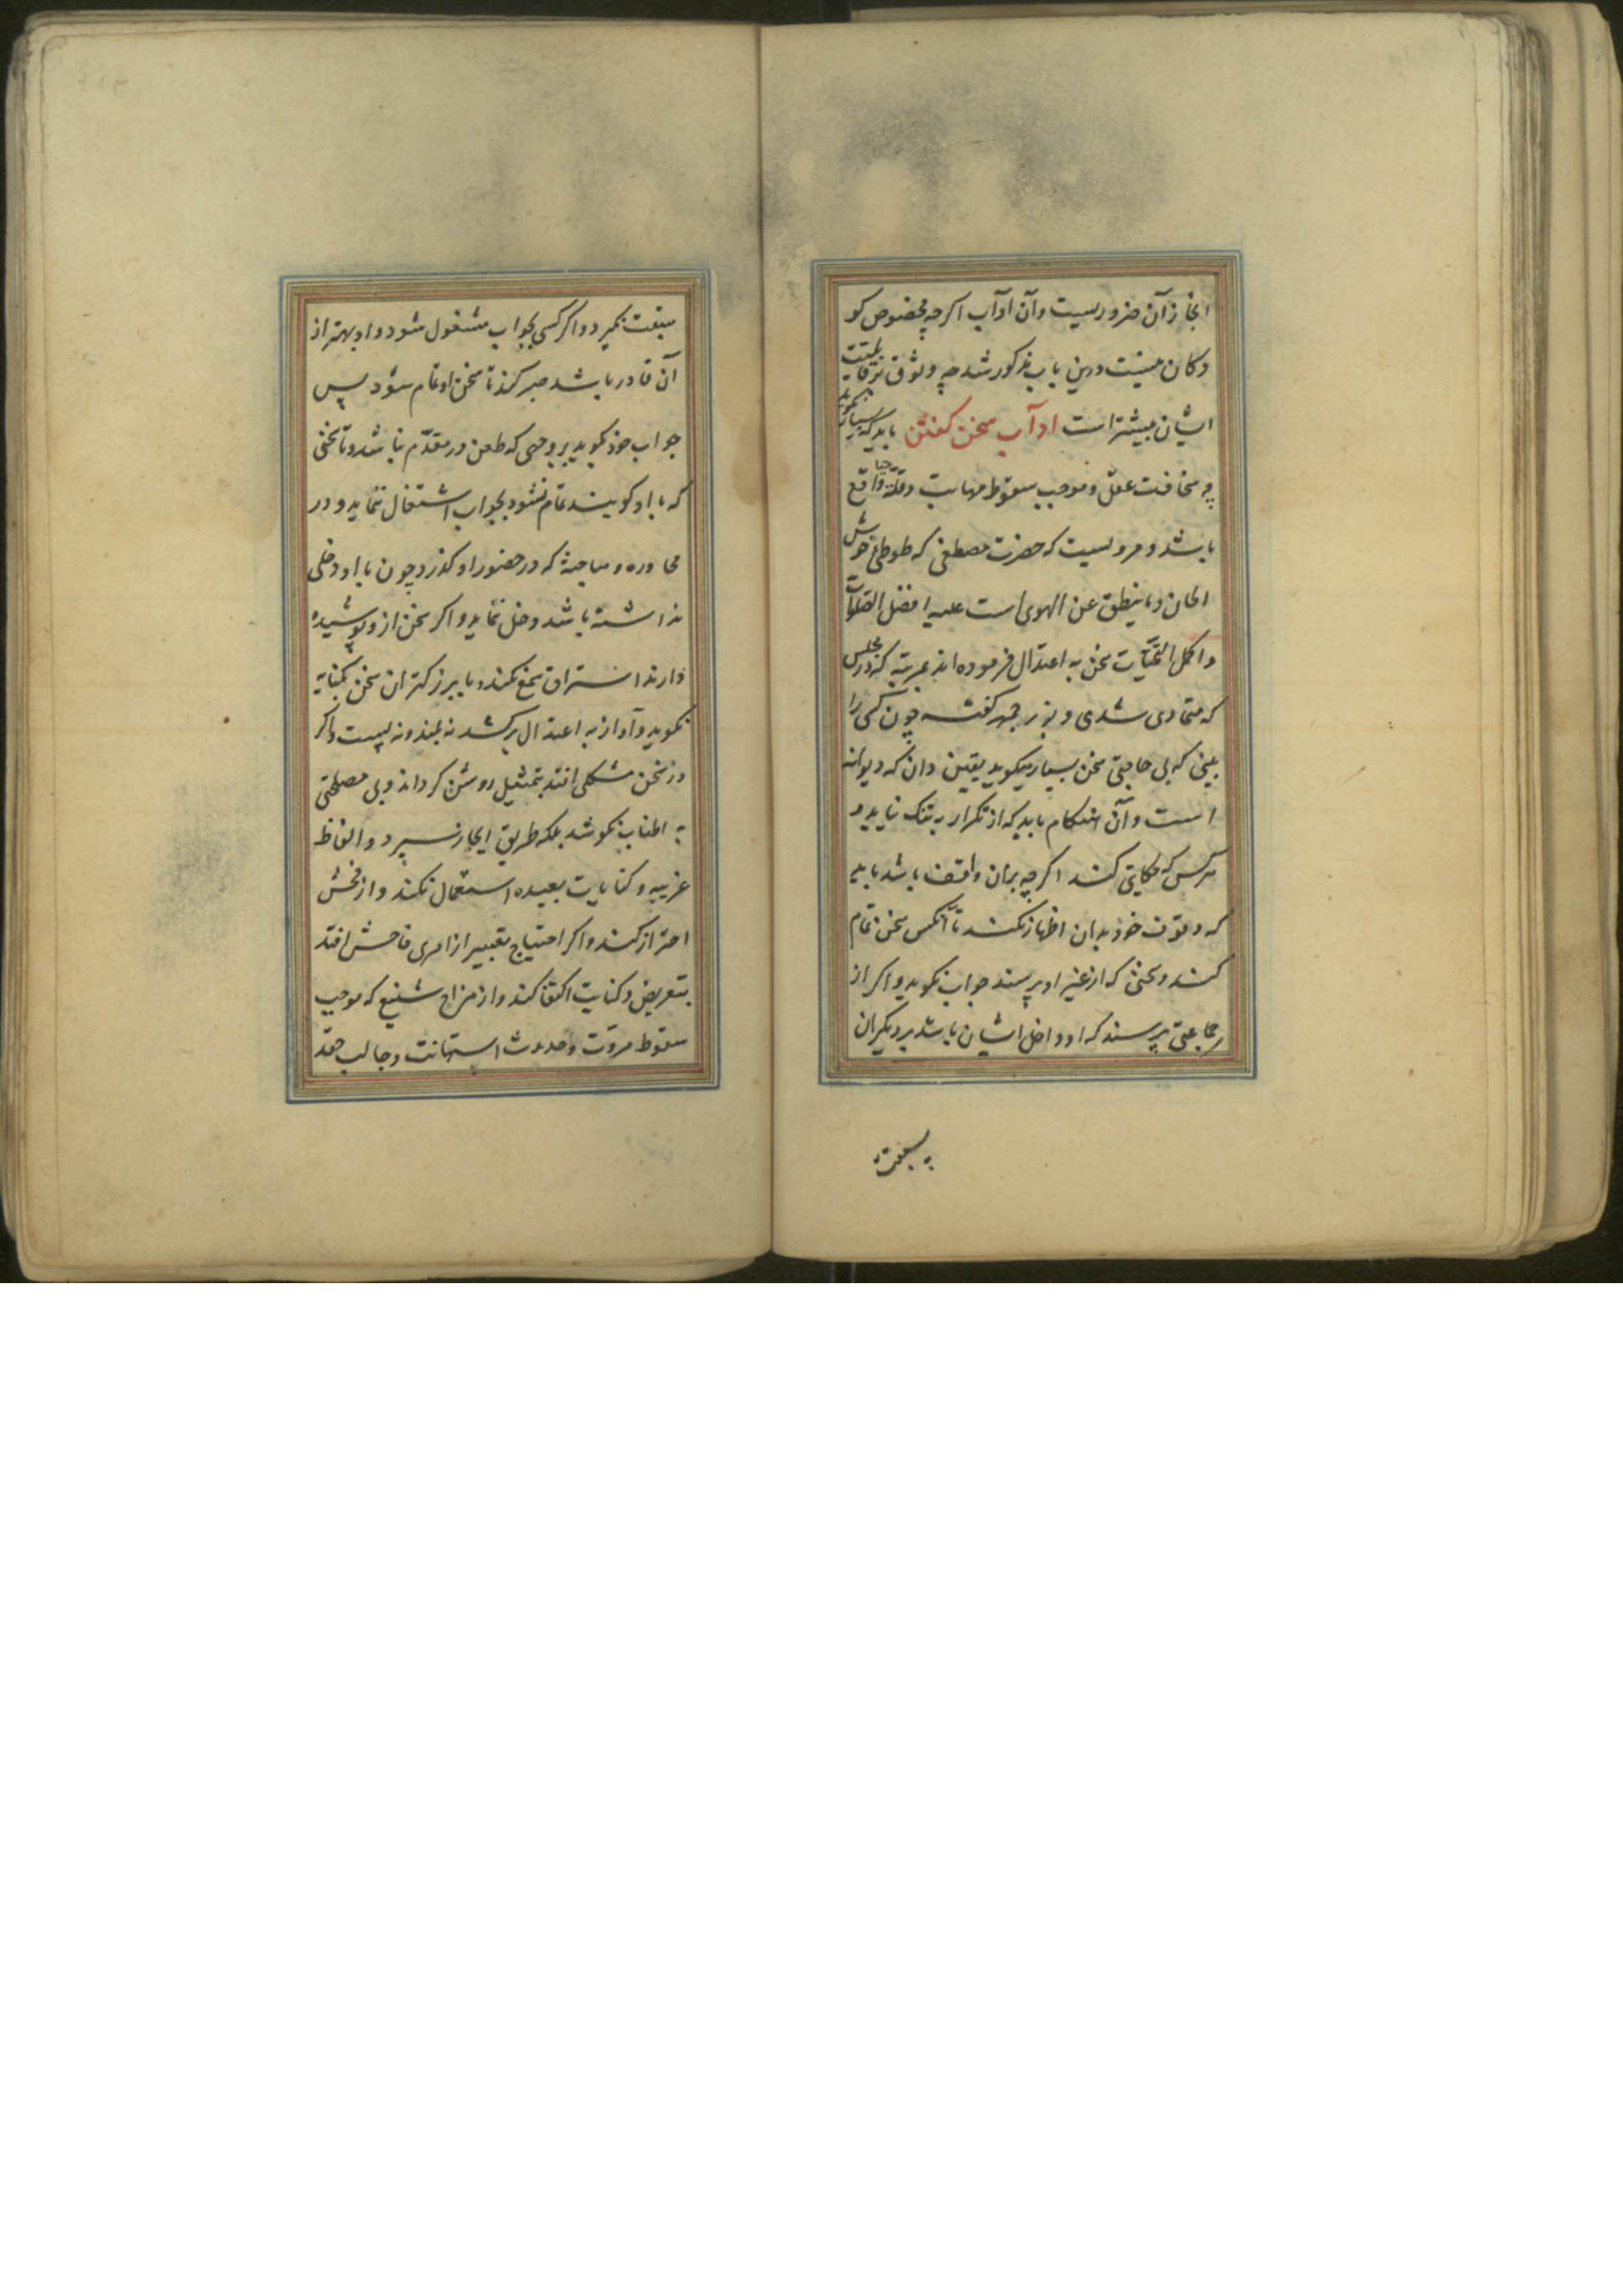 انجاز آن ضروریست و آن اداب اکرچه مخصوص کو
دکان نیست درین باب مذکور شد چه وثوق بترقیات
ایشان بیشتر است اداب سخن کفتن باید که بسیار نکوید
چه سخافت عقل و موجب سقوط مهابت و قلّة حیا واقع
باشد و مرویست که حضرت مصطفی که طوطی خوش
الحان و ما ینطق عن الهوی است علیه افضل الصلوات
و اکمل التحیّات سخن به اعتدال فرموده اند بمرتبه که در مجلس
که متمادی شدی و بوزرجمهر کفته چون کسی را
بینی که بی حاجتی سخن بسیار میکوید یقین دان که دیوانه
است و آن هنکام باید که از تکرار به تنک نیاید و
هرکس که حکایتی کند اکرچه بران واقف باشد باید
که وقوف خود بدان اظهار نکند تا آنکس سخن تمام
کند و سخنی که از غیر او پرسند جواب نکوید و اکر از
جماعتی پرسند که او داخل ایشان باشد بر دیکران
سبقت
سبقت نکیرد و اکر کسی بجواب مشغول شود و او بهتر از
آن قادر باشد صبر کند تا سخن او تمام شود پس
جواب خود بکوید بر وجهی که طعن در مقدّم نباشد و تا سخنی
که با او کویند تمام نشود بجواب اشتغال ننماید و در
محاوره و مباحثه که در حضور او کذرد چون با او دخلی
نداشته باشد دخل ننماید و اکر سخن از و پوشیده
دارند استراق سمع نکند و با بزرکتران سخن بکنایه
نکوید و آواز به اعتدال برکشد نه بلند و نه پست و اکر
در سخن مشکلی افتد بتمثیل روشن کرداند و بی مصلحتی
به اطناب نکوشد بلکه طریق ایجاز سپرد و الفاظ
غریبه و کنایات بعیده استعمال نکند و از فحش
احتراز کند و اکر احتیاج بتعبیر از امری فاحش افتد
بتعریض و کنایت اکتفا کند و از مزاح شنیع که موجب
سقوط مروّت و حدوث استهانت و جالب حقد